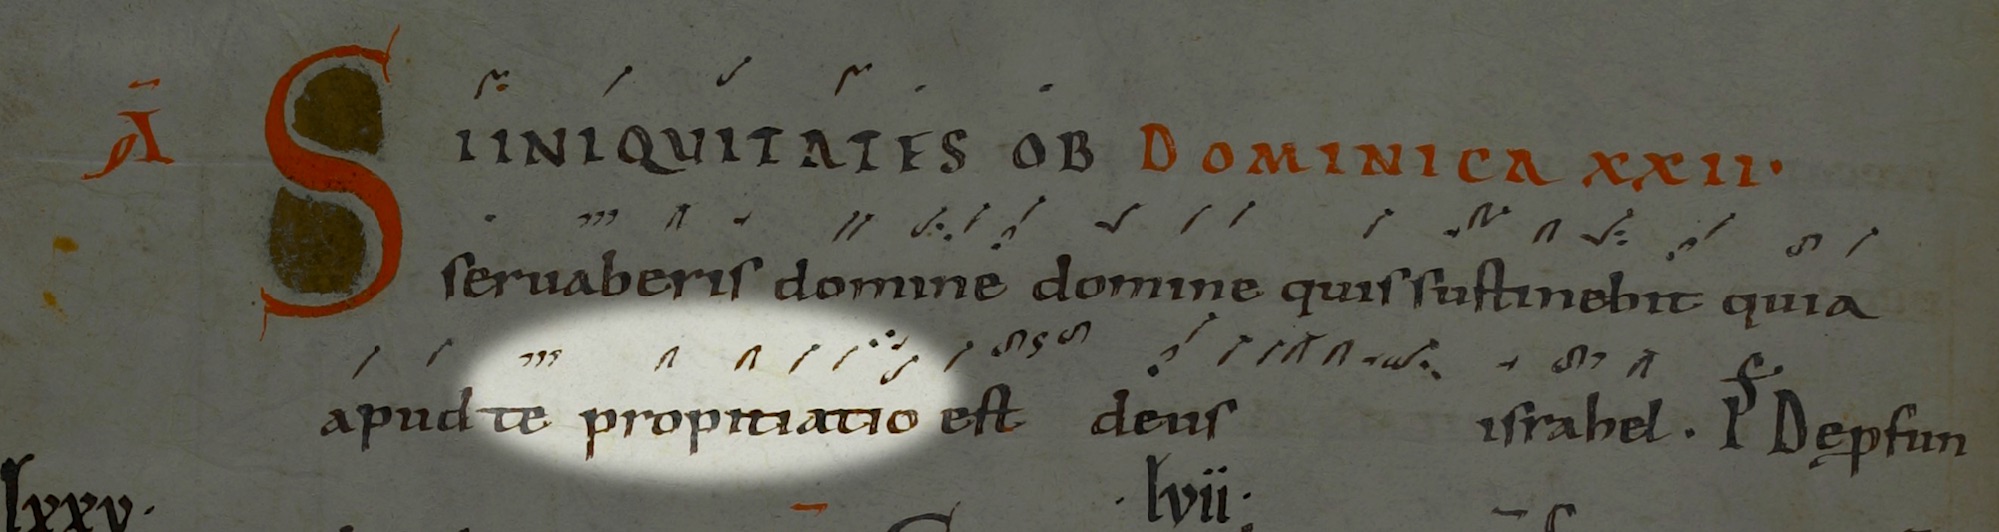 A SIINIQUITATES OB DOMINICA XXII.
servaberis domine domine quis sustinebit quia
apud te propitiatio est deus israhel. Ps Depfun
lxxv. lvii.